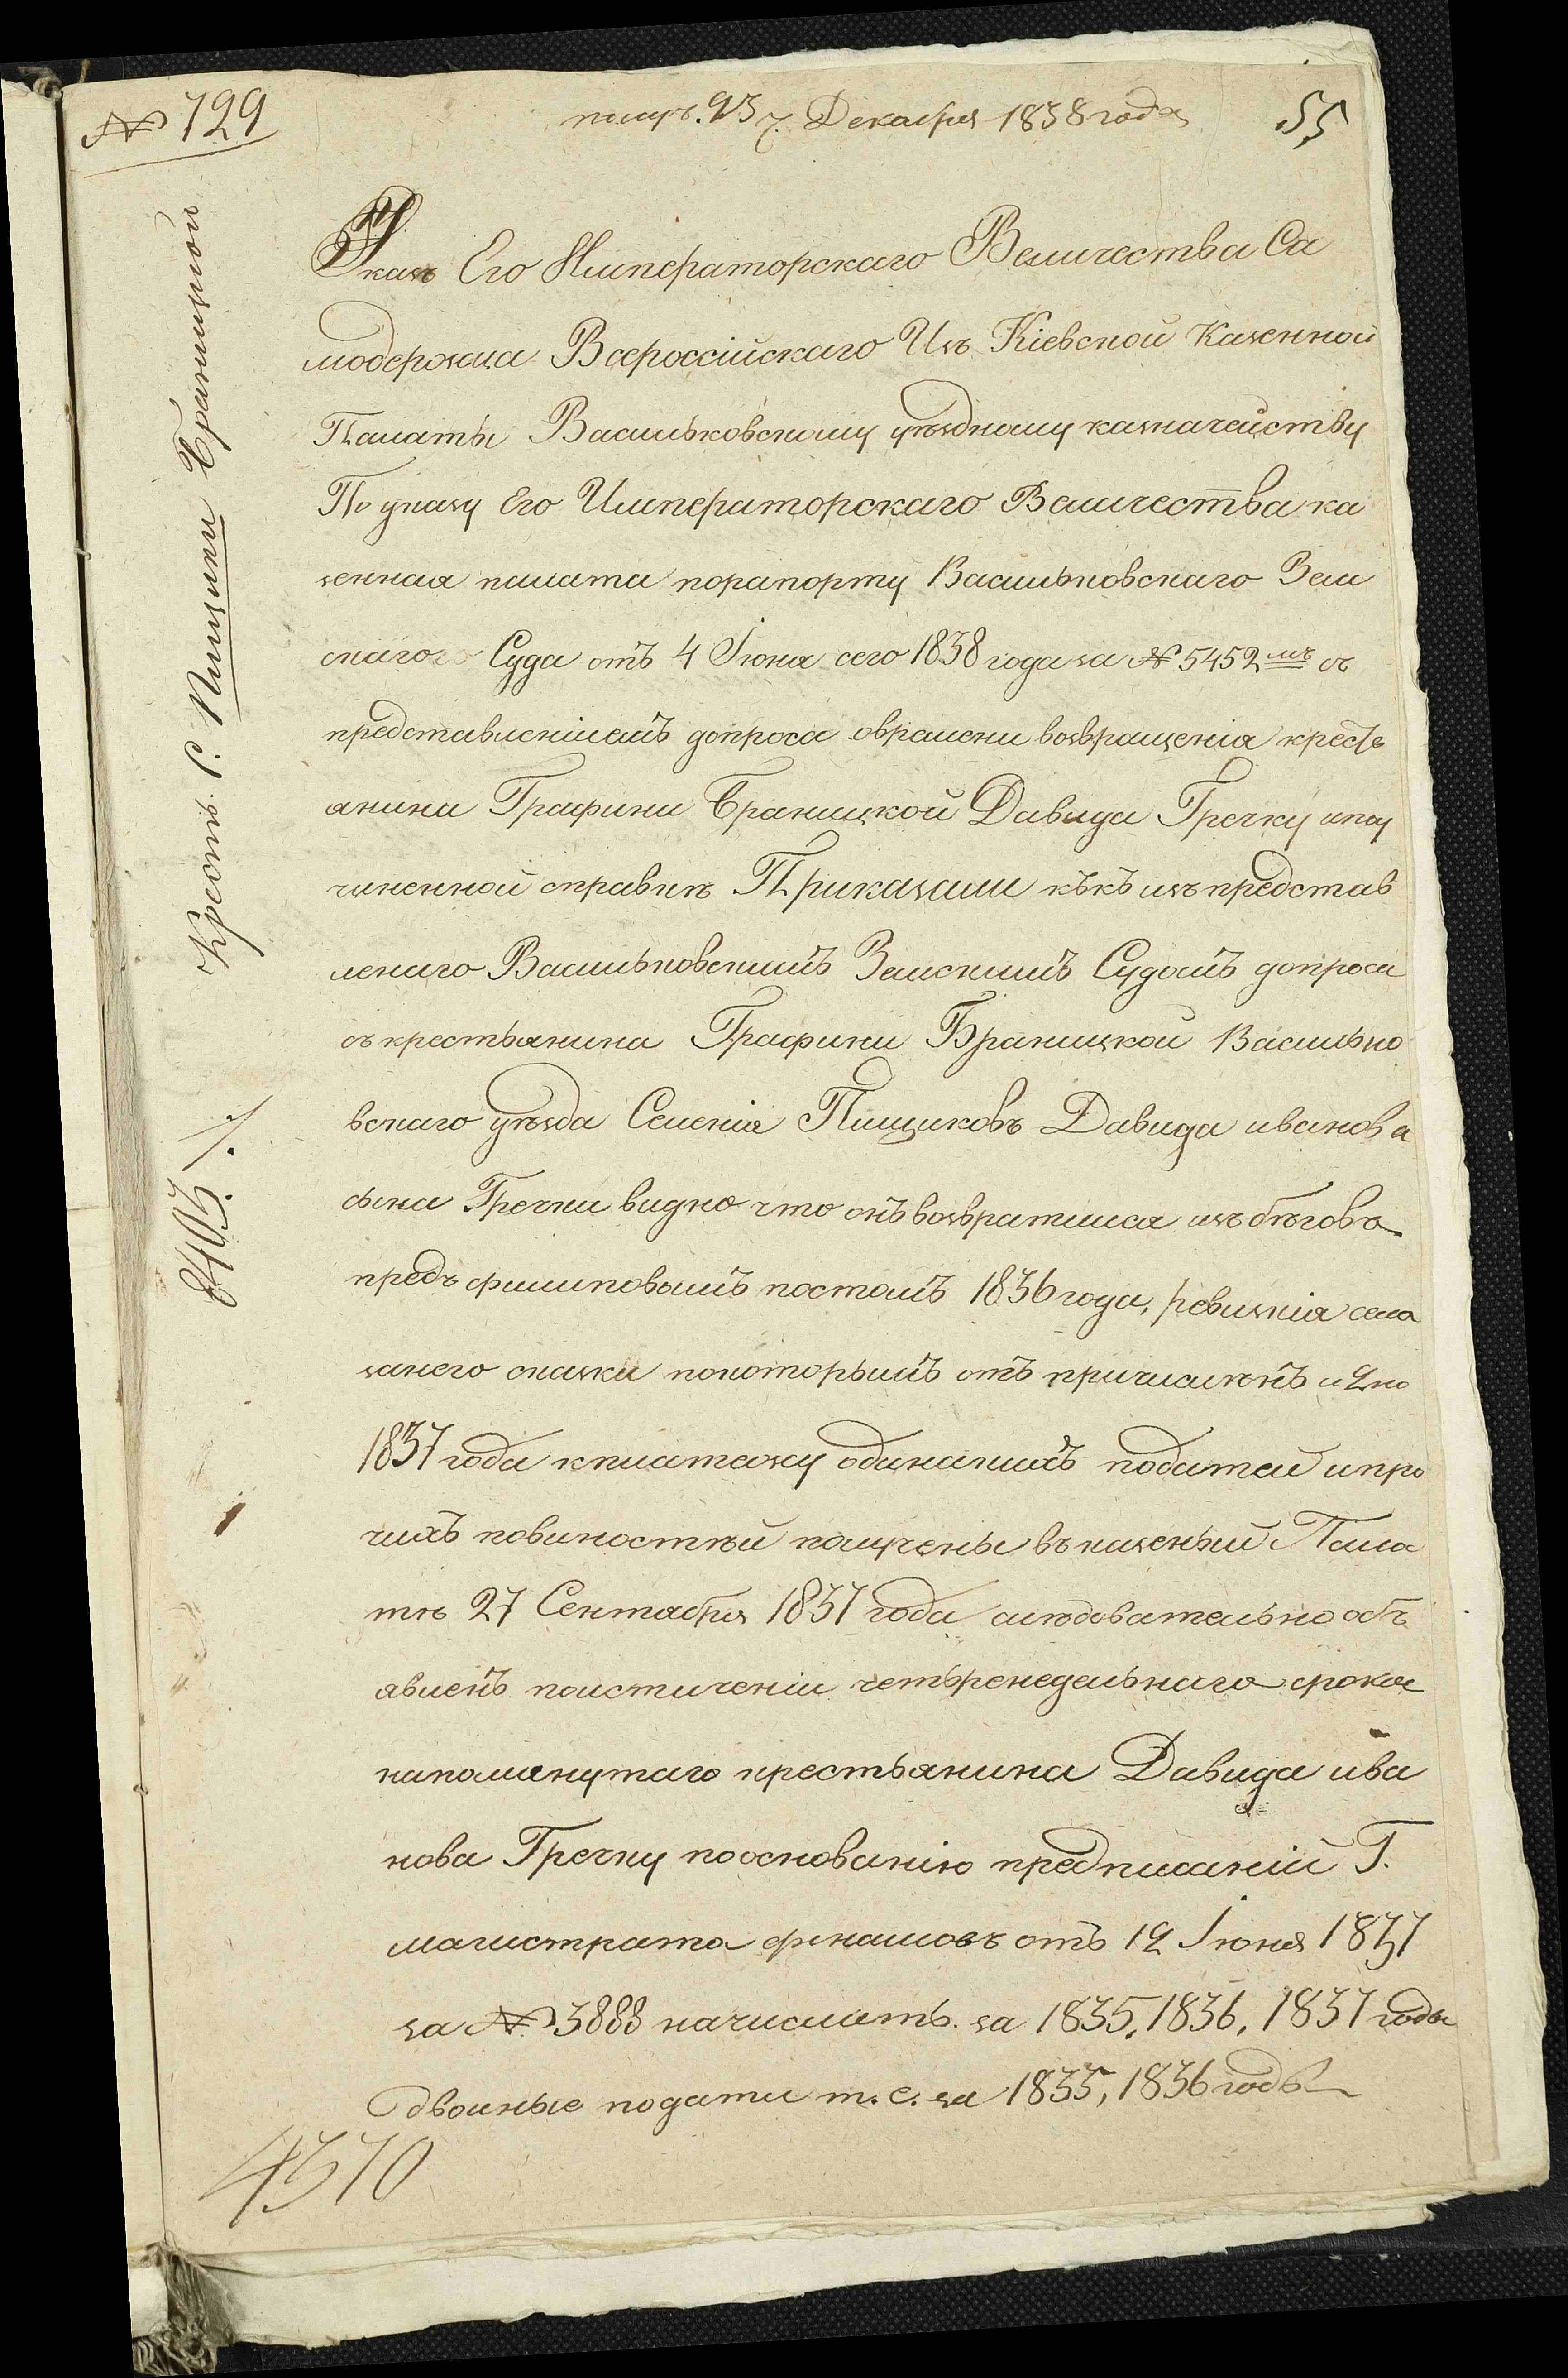 № 729
получ. 23 г. Декабря 1838 года
55
Крестъ. С. Пищики Браницкой
8403 ./.
Указъ Его Императорскаго Величества Са
модержца Всероссійскаго Изъ Кіевской Казенной
Палаты Васильковскому уѣздному казначейству
По указу Его Императорскаго Величества ка
зенная палата порапорту Васильковскаго Зем
скаго Суда отъ 4 Іюня сего 1838 года за № 5452 мъ съ
представленіемъ допроса овремени возвращенія кресть
янина Графини Браницкой Давида Гречкуипоу
чиненной справкѣ Приказали какъ изъ представ
ленаго Васильковскимъ Земскимъ Судомъ допроса
съ крестьянина Графини Браницкой Василько
вскаго уѣзда Селенія Пищиковъ Давида иванова
сына Гречки видно что онъ возвратился изъ бѣговъ
предъ филиповымъ постомъ 1836 года, ревизкія села
занего сказки покоторымъ отъ причисленъ
1837 года кплатежу одинакихъ податей ипро
чихъ повиностѣй получены въ казеный Пала
тѣ 27 Сентября 1837 года слѣдовательно объ
явленъ поистиченіи четырѣнедельнаго срока
напомянутаго крестьянина Давида ива
нова Гречку пооснованію предписаній Г.
магистрата финансовъ отъ 12 Іюня 1837
за № 3888 начислить. за 1835, 1836, 1837 годы
двойные подати т. е. за 1835, 1836 годы
4370